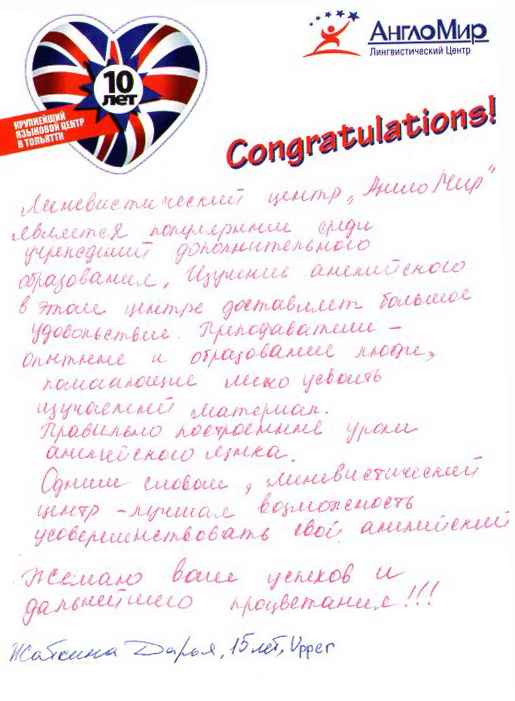 10
лет
КРУПНЕЙШИЙ
ЯЗЫКОВОЙ ЦЕНТР
В ТОЛЬЯТТИ
АнглоМир
Лингвистический Центр
Congratulations!
Лингвистический центр „АнглоМир"
является популярным среди
учреждений дополнительного
образования. Изучение английского
в этом центре доставляет большое
удовольствие. Преподаватели –
опытные и образованые люди,
помогающие легко усвоить
изучаемый материал.
Правильно построенные уроки
английского языка.
Одним словом, лингвистический
центр – лучшая возможность
усовершенствовать свой английский
Желаю вам успехов и
дальнейшего процветания!!!
Дарья, 15 лет, Upper